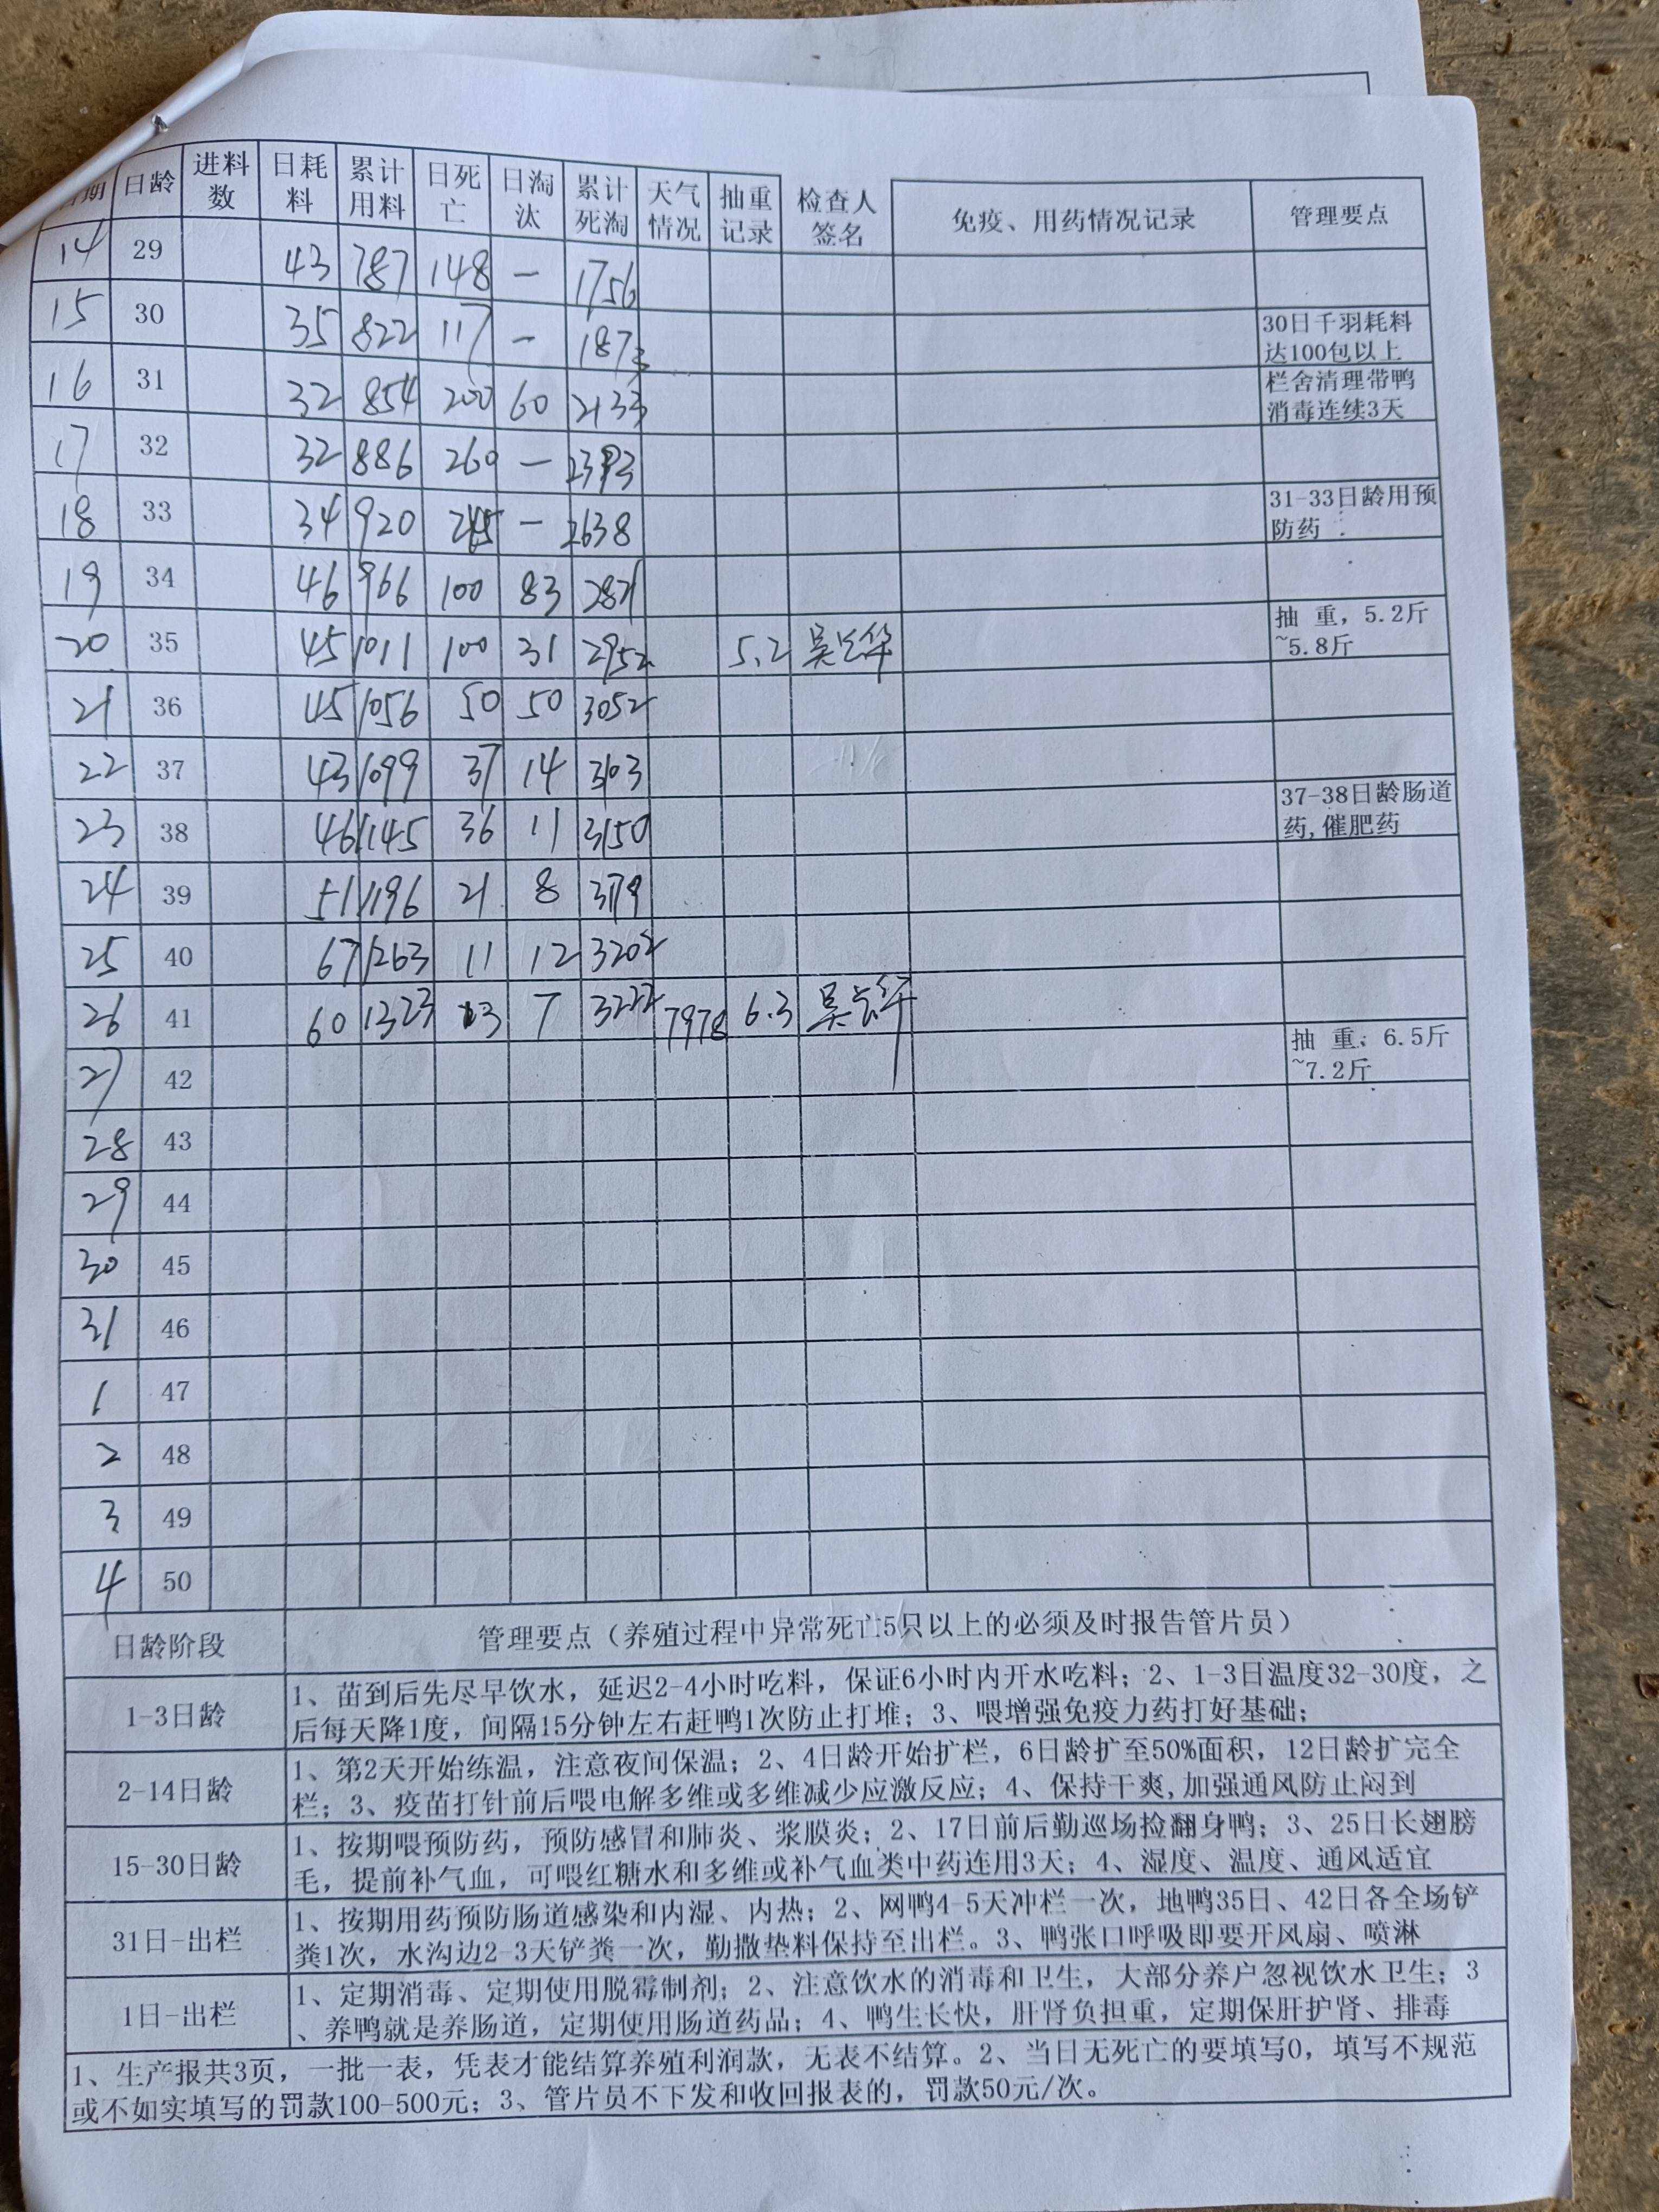 日期 日龄 进料数 日耗料 累计用料 日死亡 日淘汰 累计死淘 天气情况 抽重记录 检查人签名 免疫、用药情况记录 管理要点
14 29 43 787 148 — 1756
15 30 35 822 117 — 1873 30日千羽耗料达100包以上
16 31 32 854 200 60 2133 栏舍清理带鸭消毒连续3天
17 32 32 886 260 — 2393
18 33 34 920 245 — 2638 31-33日龄用预防药
19 34 46 966 100 83 2821
20 35 45 1011 100 31 2952 5.2 抽 重，5.2斤~5.8斤
21 36 45 1056 50 50 3052
22 37 43 1099 37 14 3103
23 38 46 1145 36 11 3150 37-38日龄肠道药,催肥药
24 39 51 1196 21 8 3179
25 40 67 1263 11 12 3202
26 41 60 1323 13 7 3222 7978 6.3
27 42 抽 重：6.5斤~7.2斤
28 43
29 44
30 45
31 46
1 47
2 48
3 49
4 50
日龄阶段 管理要点（养殖过程中异常死亡5只以上的必须及时报告管片员）
1-3日龄 1、苗到后先尽早饮水，延迟2-4小时吃料，保证6小时内开水吃料；2、1-3日温度32-30度，之
后每天降1度，间隔15分钟左右赶鸭1次防止打堆；3、喂增强免疫力药打好基础；
2-14日龄 1、第2天开始练温，注意夜间保温；2、4日龄开始扩栏，6日龄扩至50%面积，12日龄扩完全
栏；3、疫苗打针前后喂电解多维或多维减少应激反应；4、保持干爽,加强通风防止闷到
15-30日龄 1、按期喂预防药，预防感冒和肺炎、浆膜炎；2、17日前后勤巡场捡翻身鸭；3、25日长翅膀
毛，提前补气血，可喂红糖水和多维或补气血类中药连用3天；4、湿度、温度、通风适宜
31日-出栏 1、按期用药预防肠道感染和内湿、内热；2、网鸭4-5天冲栏一次，地鸭35日、42日各全场铲
粪1次，水沟边2-3天铲粪一次，勤撒垫料保持至出栏。3、鸭张口呼吸即要开风扇、喷淋
1日-出栏 1、定期消毒、定期使用脱霉制剂；2、注意饮水的消毒和卫生，大部分养户忽视饮水卫生；3
、养鸭就是养肠道，定期使用肠道药品；4、鸭生长快，肝肾负担重，定期保肝护肾、排毒
1、生产报共3页，一批一表，凭表才能结算养殖利润款，无表不结算。2、当日无死亡的要填写0，填写不规范
或不如实填写的罚款100-500元；3、管片员不下发和收回报表的，罚款50元/次。